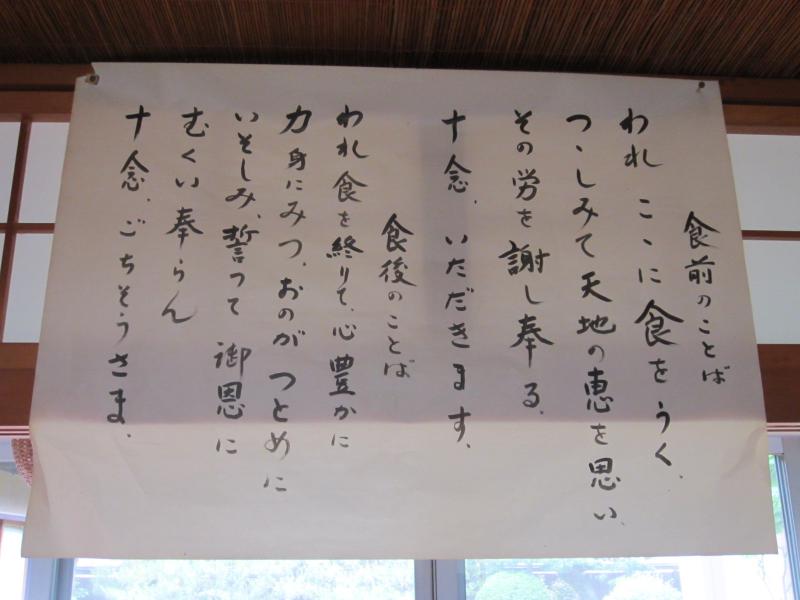 食前のことば
われ こゝに食をうく、
つゝしみて天地の恵を思い、
その労を謝し奉る、
十念、いただきます、
食後のことば
われ食を終りて、心豊かに
力身にみつ、おのがつとめに
いそしみ、誓って御恩に
むくい奉らん
十念、ごちそうさま、